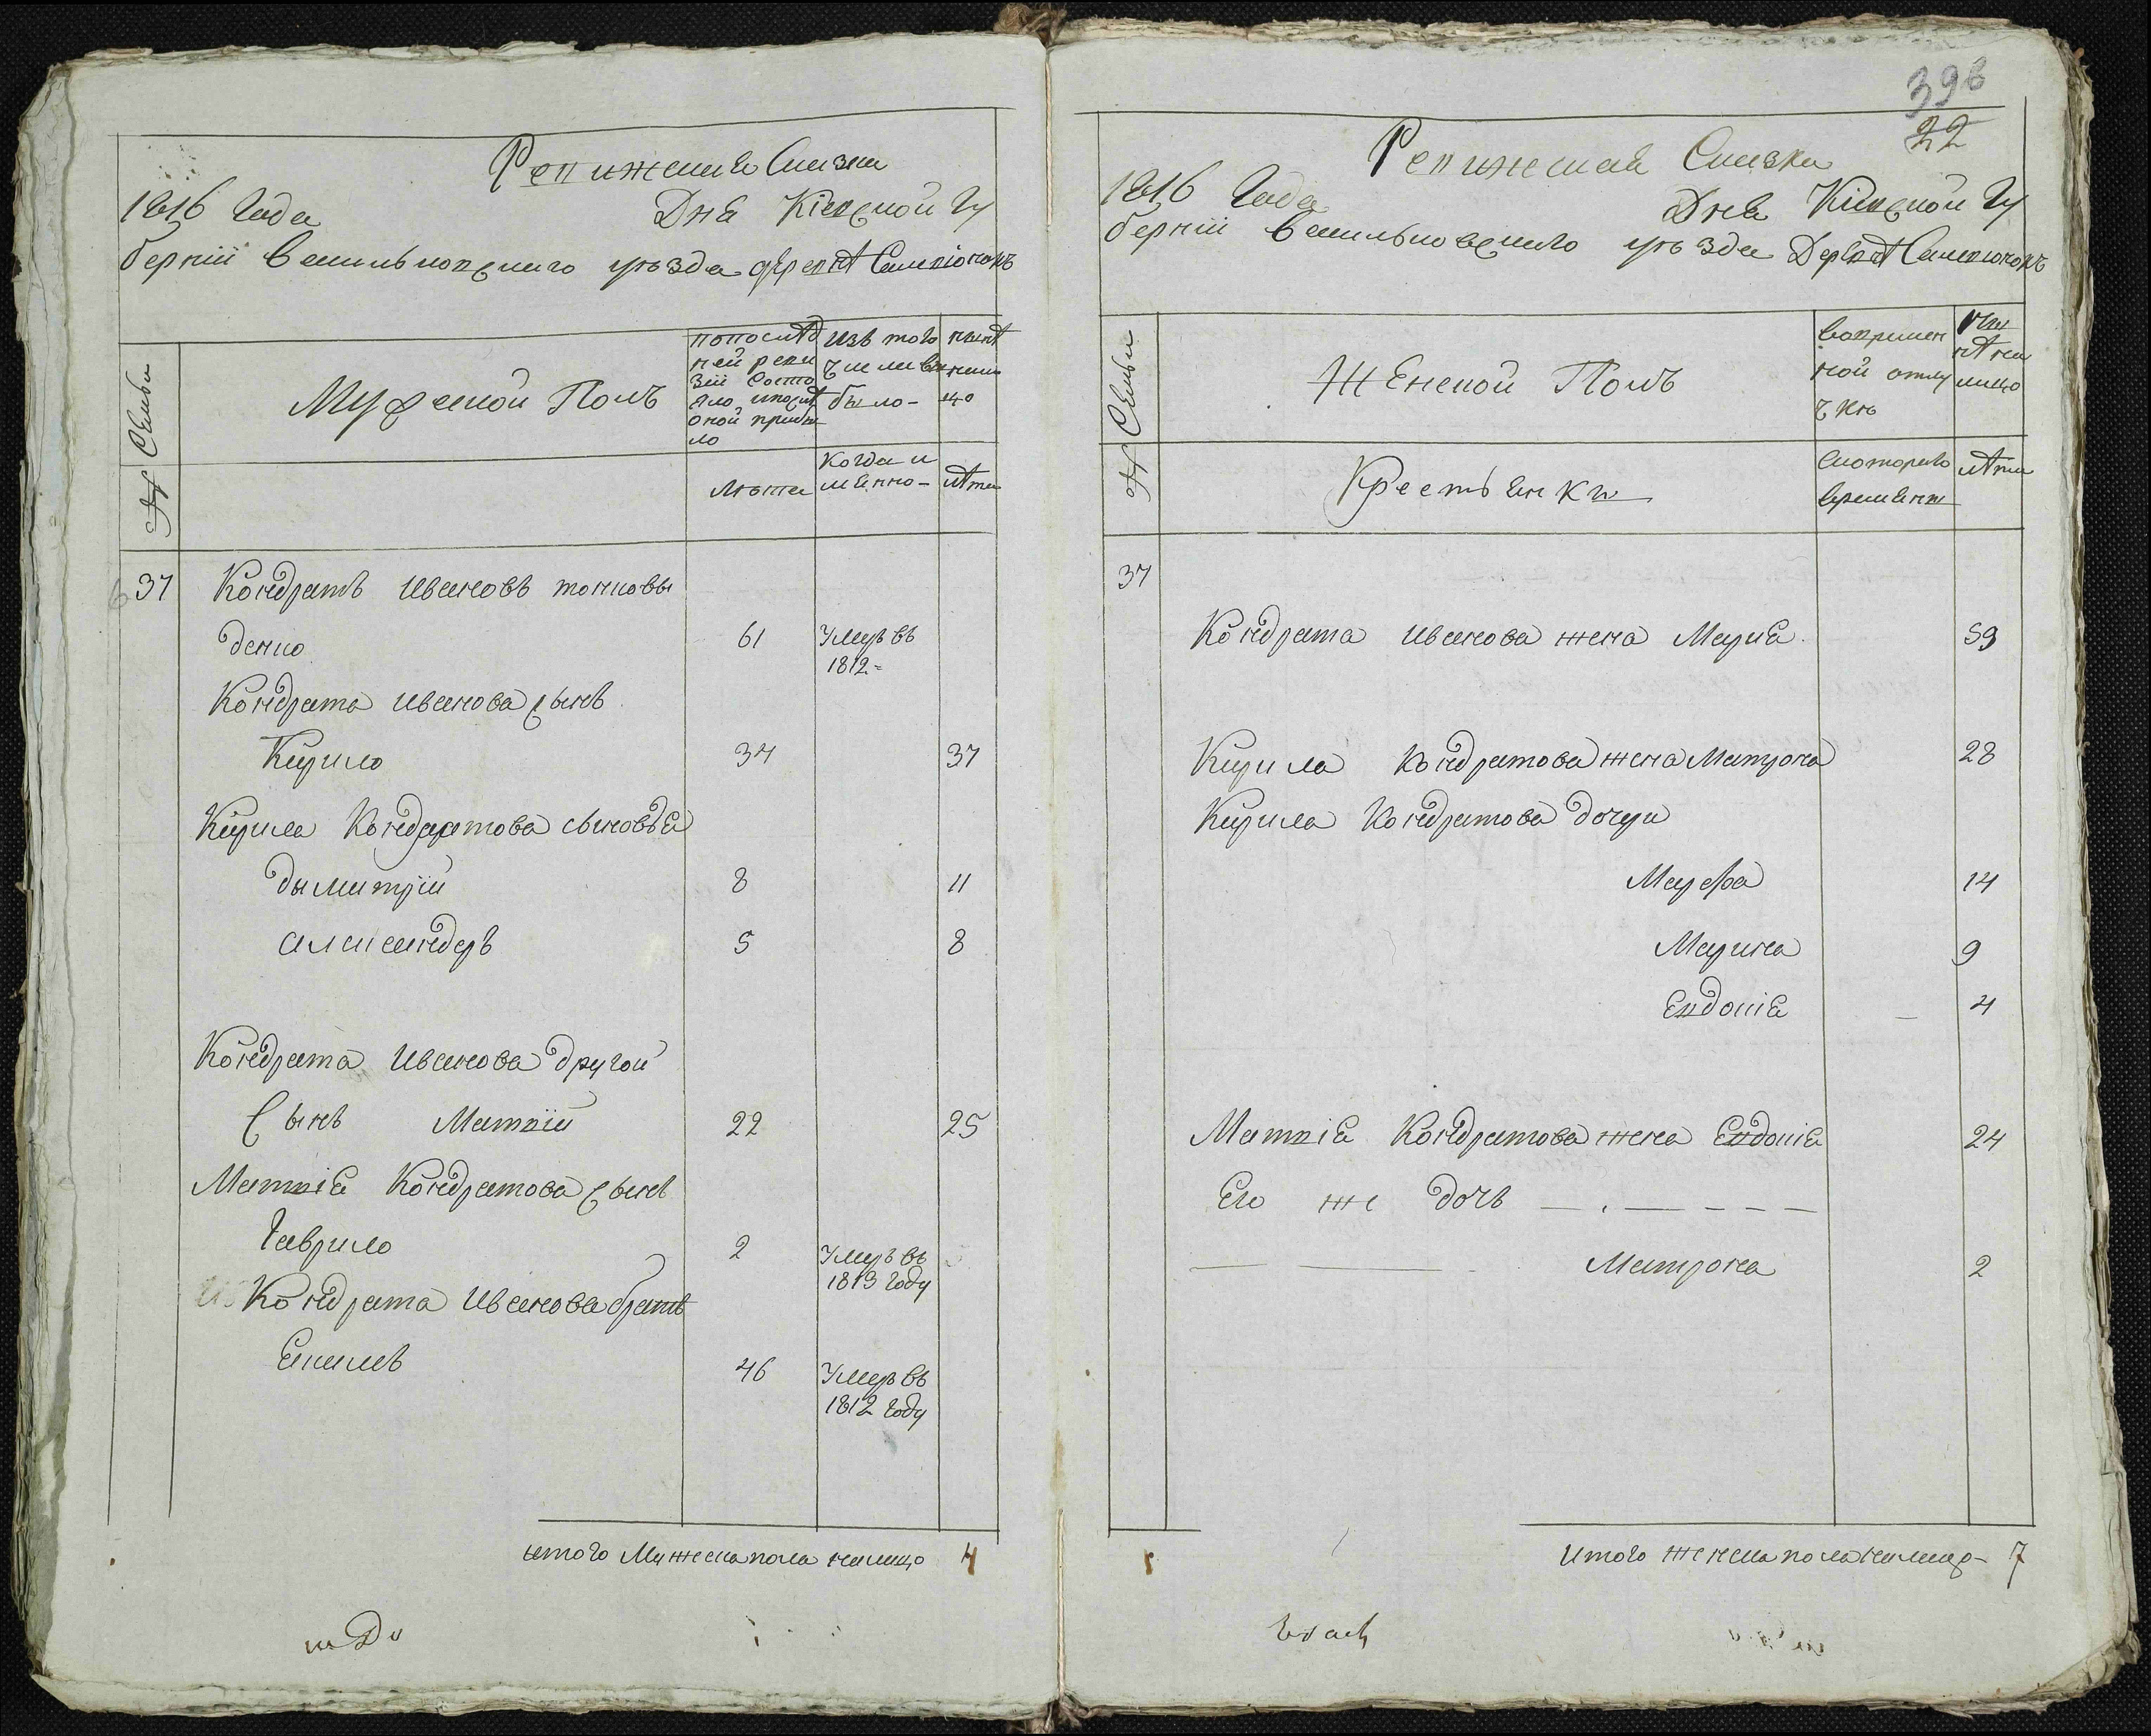 Ревижская Сказка
1816 Года Дня Кіевской Гу
берніи василковского уезда деревнѣ Саливіонокъ
№ Семьи
Мужеской Полъ
попослѣд
ней реви
зіи состо
яло ипослѣ
оной прибы
ло
изъ того
числа вы
было-
нынѣ
нали
цо
лѣта
когда и
менно-
лѣта
37 Кондратъ Ивановъ
денко 61 Умеръ въ
1812-
Кондрата Иванова сынъ
Кирило 34 37
Кирила Кондратова сыновья
Дымитрій 8 11
Александеръ 5 8
Кондрата Иванова другой
Сынъ Матвій 22 25
Матвія Кондратова сынъ
Гаврило 2 Умеръ въ
1813 Году
Кондрата Иванова братъ
Екимъ 46 Умеръ въ
1812 Году
итого Мужеска пола налицо 4
396
22
Ревижская Сказка
1816 Года Дня Кіевской Гу
берніи василковского уезда Деревнѣ Саливіонокъ
№ Семьи
Женской Полъ
вовремен
ной отлу
чкѣ
ны
нѣ на
лицо
Крестьянки
скоторого
времени
лѣта
37
Кондрата Иванова жена Марія 59
Кирила Кондратова жена Матрона 28
Кирила Кондратова дочери
Марфа 14
Марина 9
Евдокія 4
Матвія Кондратова жена Евдокія 24
Его же дочь
Матрона 2
итого женска пола налицо- 7